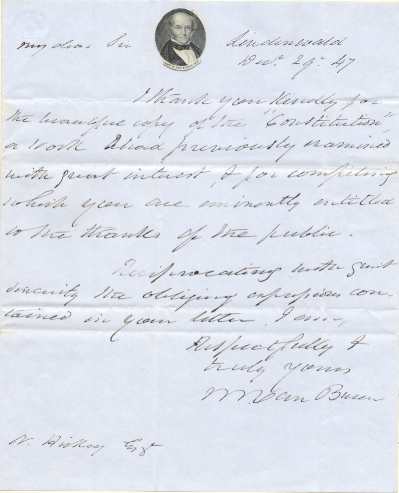 My dear Sir
Lindenwald
Decr. 29th. 47
I thank you kindly for
the beautiful copy of the "Constitution",
a work I had previously examined
with great interest & for compiling
which you are eminently entitled
to the thanks of the public.
Reciprocating with great
sincerity the obliging expressions con-
tained in your letter. I am,
Respectfully &
truly yours
M Van Buren
W. Hickey Esqr